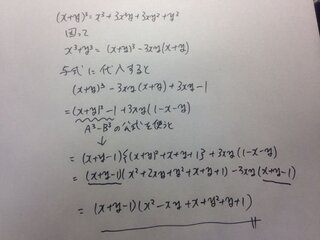 (x+y)³= x³+3x²y+3xy²+y³
因って
x³+y³ = (x+y)³-3xy(x+y)
与式に代入すると
(x+y)³-3xy(x+y)+3xy-1
=(x+y)³-1+3xy(1-x-y)
A³-B³の公式を使うと
=(x+y-1){(x+y)²+x+y+1}+3xy(1-x-y)
=(x+y-1)(x²+2xy+y²+x+y+1)-3xy(x+y-1)
=(x+y-1)(x²-xy+x+y²+y+1)